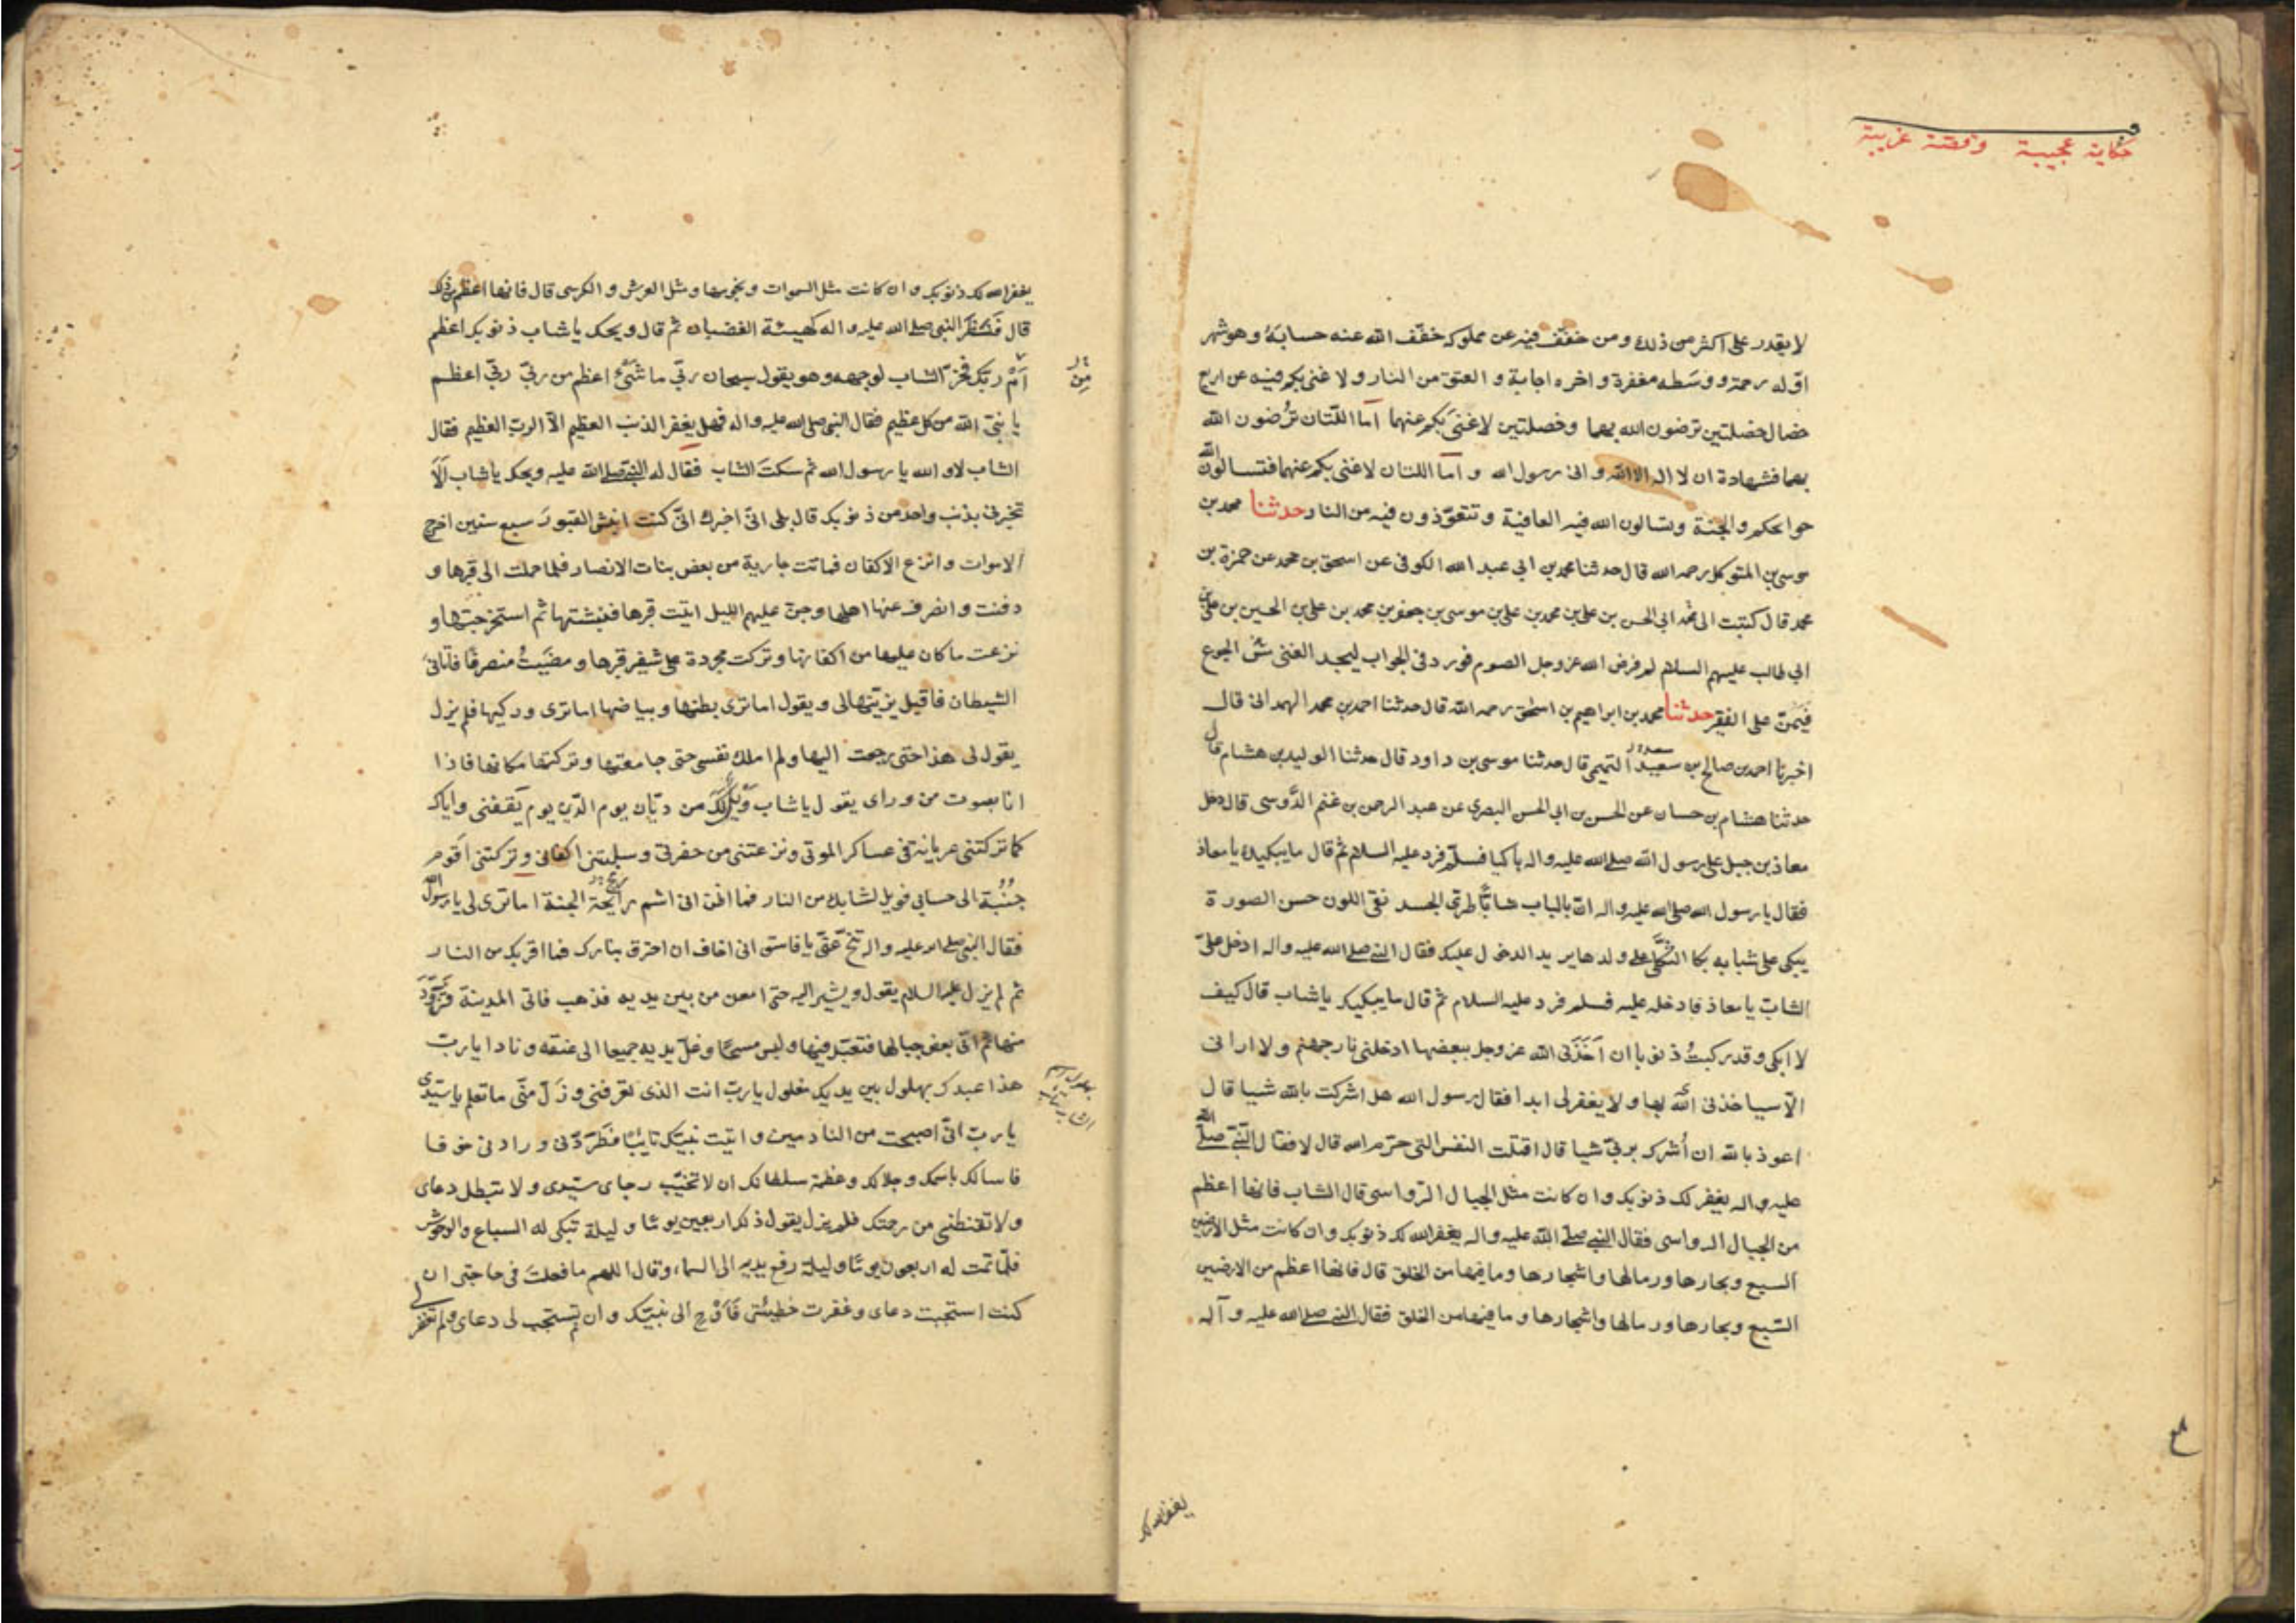 حكاية عجيبة وقصة غريبة
لا يقدر على اكثر من ذلك ومن خفّف فيه عن مملوكه خفّف الله عنه حسابه وهو شهر
اوّله رحمة ووسَطه مغفرة واخره اجابة والعتق من النار ولا غنى بكم فيه عن اربع
خصال خصلتين ترضون الله بهما وخصلتين لا غنىً بكم عنهما امّا اللّتان تُرضون الله
بهما فشهادة ان لا اله الا الله وانى رسول الله و امّا اللتان لا غنى بكم عنهما فتسالون الله
حوايجكم والجنة وتسالون الله فيه العافية وتتعوّذون فيه من النار حدثنا محمد بن
موسى بن المتوكل رحمه الله قال حدثنا محمد بن ابي عبد الله الكوفى عن اسحق بن محمد عن حمزة بن
محمد قال كتبت الى ابي الحسن بن على بن محمد بن على بن موسى بن جعفر بن محمد بن على بن الحسين بن على بن
ابي طالب عليهم السلام لم فرض الله عز وجل الصوم فورد فى الجواب ليجد الغنى مسّ الجوع
فيَمُنّ على الفقير حدثنا محمد بن ابراهيم بن اسحق رحمه الله قال حدثنا احمد بن محمد الهمدانى قال
اخبرنا احمد بن صالح بن سعيد التميمى قال حدثنا موسى بن داود قال حدثنا الوليد بن هشام قال
حدثنا هشام بن حسان عن الحسن بن ابى الحسن البصرى عن عبد الرحمن بن غنم الدَّوسى قال دخل
معاذ بن جبل على رسول الله صلى الله عليه واله باكيا فسلّم فرد عليه السلام ثم قال ما يبكيك يا معاذ
فقال يا رسول الله صلى الله عليه واله انّ بالباب شابًّا طرىّ الجسد نقى اللون حسن الصورة
يبكى على شبابه بكا الثكلى على ولدها يريد الدخول عليك فقال النبى صلى الله عليه واله ادخل علىّ
الشابّ يا معاذ فادخله عليه فسلم فرد عليه السلام ثم قال ما يبكيك يا شاب قال كيف
لا ابكى وقد ركبتُ ذنوبا ان اَخَذَنى الله عز وجل ببعضها ادخلنى نار جهنم ولا ارانى
الّا سياخذنى الله بها ولا يغفر لى ابدا فقال رسول الله هل اشركت بالله شيا قال
اعوذ بالله ان اُشرك بربىّ شيا قال اقتلت النفس التى حرّم الله قال لا فقال النّبىّ صلّى الله
عليه واله يغفر لك ذنوبك وان كانت مثل الجبال الرّواسى قال الشاب فانها اعظم
من الجبال الرواسى فقال النبى صلّى الله عليه واله يغفر الله لك ذنوبك وان كانت مثل الارضين
السبع وبحارها ورمالها واشجارها وما فيها من الخلق قال فانها اعظم من الارضين
السّبع وبحارها ورمالها واشجارها وما فيها من الخلق فقال النبى صلى الله عليه وآله
يغفر الله لك
يغفر الله لك ذنوبك وان كانت مثل السموات ونجومها ومثل العرش والكرسى قال فانها اعظم من ذلك
قال فَنَظَر النبى صلى الله عليه واله كهيئة الغضبان ثم قال ويحك يا شاب ذنوبك اعظم
اَمْ ربّك فخرّ الشاب لوجهه وهو يقول سبحان ربّى ما شَىءٌ اعظم من ربّى ربّى اعظم
مِنْ
يا نبىّ الله من كل عظيم فقال النبى صلى الله عليه واله فهل يغفر الذنب العظيم الّا الربّ العظيم فقال
الشاب لا والله يا رسول الله ثم سكتَ الشاب فقال له النبى صلى الله عليه ويحك يا شاب اَلَا
تخبرنى بذنب واحد من ذنوبك قال بلى انّى اخبرك انّى كنت انبش القبورَ سبع سنين اخرج
الاموات وانزع الاكفان فماتت جارية من بعض بنات الانصار فلما حملت الى قبرها و
دفنت وانصرف عنها اهلها وجنّ عليهم الليل اتيت قبرها فنبشتها ثم استخرجتها و
نزعت ما كان عليها من اكفانها وتركت مجردة على شفير قبرها ومضَيتُ منصرفًا فاتانى
الشيطان فاقبل يزيّنها لى ويقول اما ترى بطنها وبياضها اما ترى وركيها فلم يزل
يقول لى هذا حتى رجعت اليها ولم املك نفسى حتى جامعتها وتركتها مكانها فاذا
انا بصوت من وراى يقول يا شاب وَيلٌ لكَ من ديّان يوم الدّين يوم يَقِفنى واياك
كما تركتنى عريانة فى عساكر الموتى ونزعتنى من حفرتى وسلبتنى اكفانى وتركتنى اقوم
جُنُبة الى حسابى فويل لشبابك من النار فما اظنّ انى اشم رائحة الجنة اما ترى لى يا رسول الله
فقال النبى صلى الله عليه واله تنحّ عَنّى يا فاسق انى اخاف ان احترق بنارك فما اقربك من النار
ثم لم يزل عليه السلام يقول ويشير اليه حتى امعن من بين يديه فذهب فاتى المدينة فتزوّدَ
منها ثم اتى بعض جبالها فتعبّد فيها ولبس مسحًا وغلّ يديه جميعا الى عنقه ونادا يا ربّ
هذا عبدك بهلول بين يديك مغلول يا ربّ انت الذى تعرفنى وزَلّ منّى ما تعلم يا سيّدى
يا ربّ انّى اصبحت من النادمين واتيت نبيّك تائبًا فَطَرَدَنى ورادنى خوفا
فاسالك باسمك وجلالك وعظمة سلطانك ان لا تخيّب رجاى سيّدى ولا تبطل دعاى
ولا تقنطنى من رحمتك فلم يزل يقول ذلك اربعين يومًا وليلة تبكى له السباع والوحوش
فلمّا تمت له اربعون يومًا وليلة رفع يديه الى السماء وقال اللهم ما فعلتَ فى حاجتى ان
كنت استجبت دعاى وغفرت خطيئتى فَاَوْحِ الى نبيّك وان لم تستجب لى دعاى ولم تغفر لى